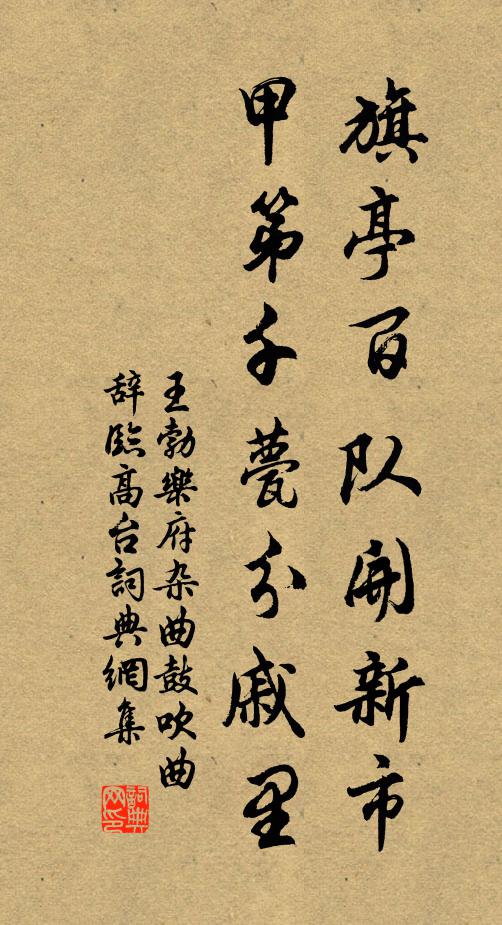 旗亭百队开新市
甲第千甍分戚里
王勃樂府杂曲鼓吹曲
辞臨高台詞典網集
詞典网印